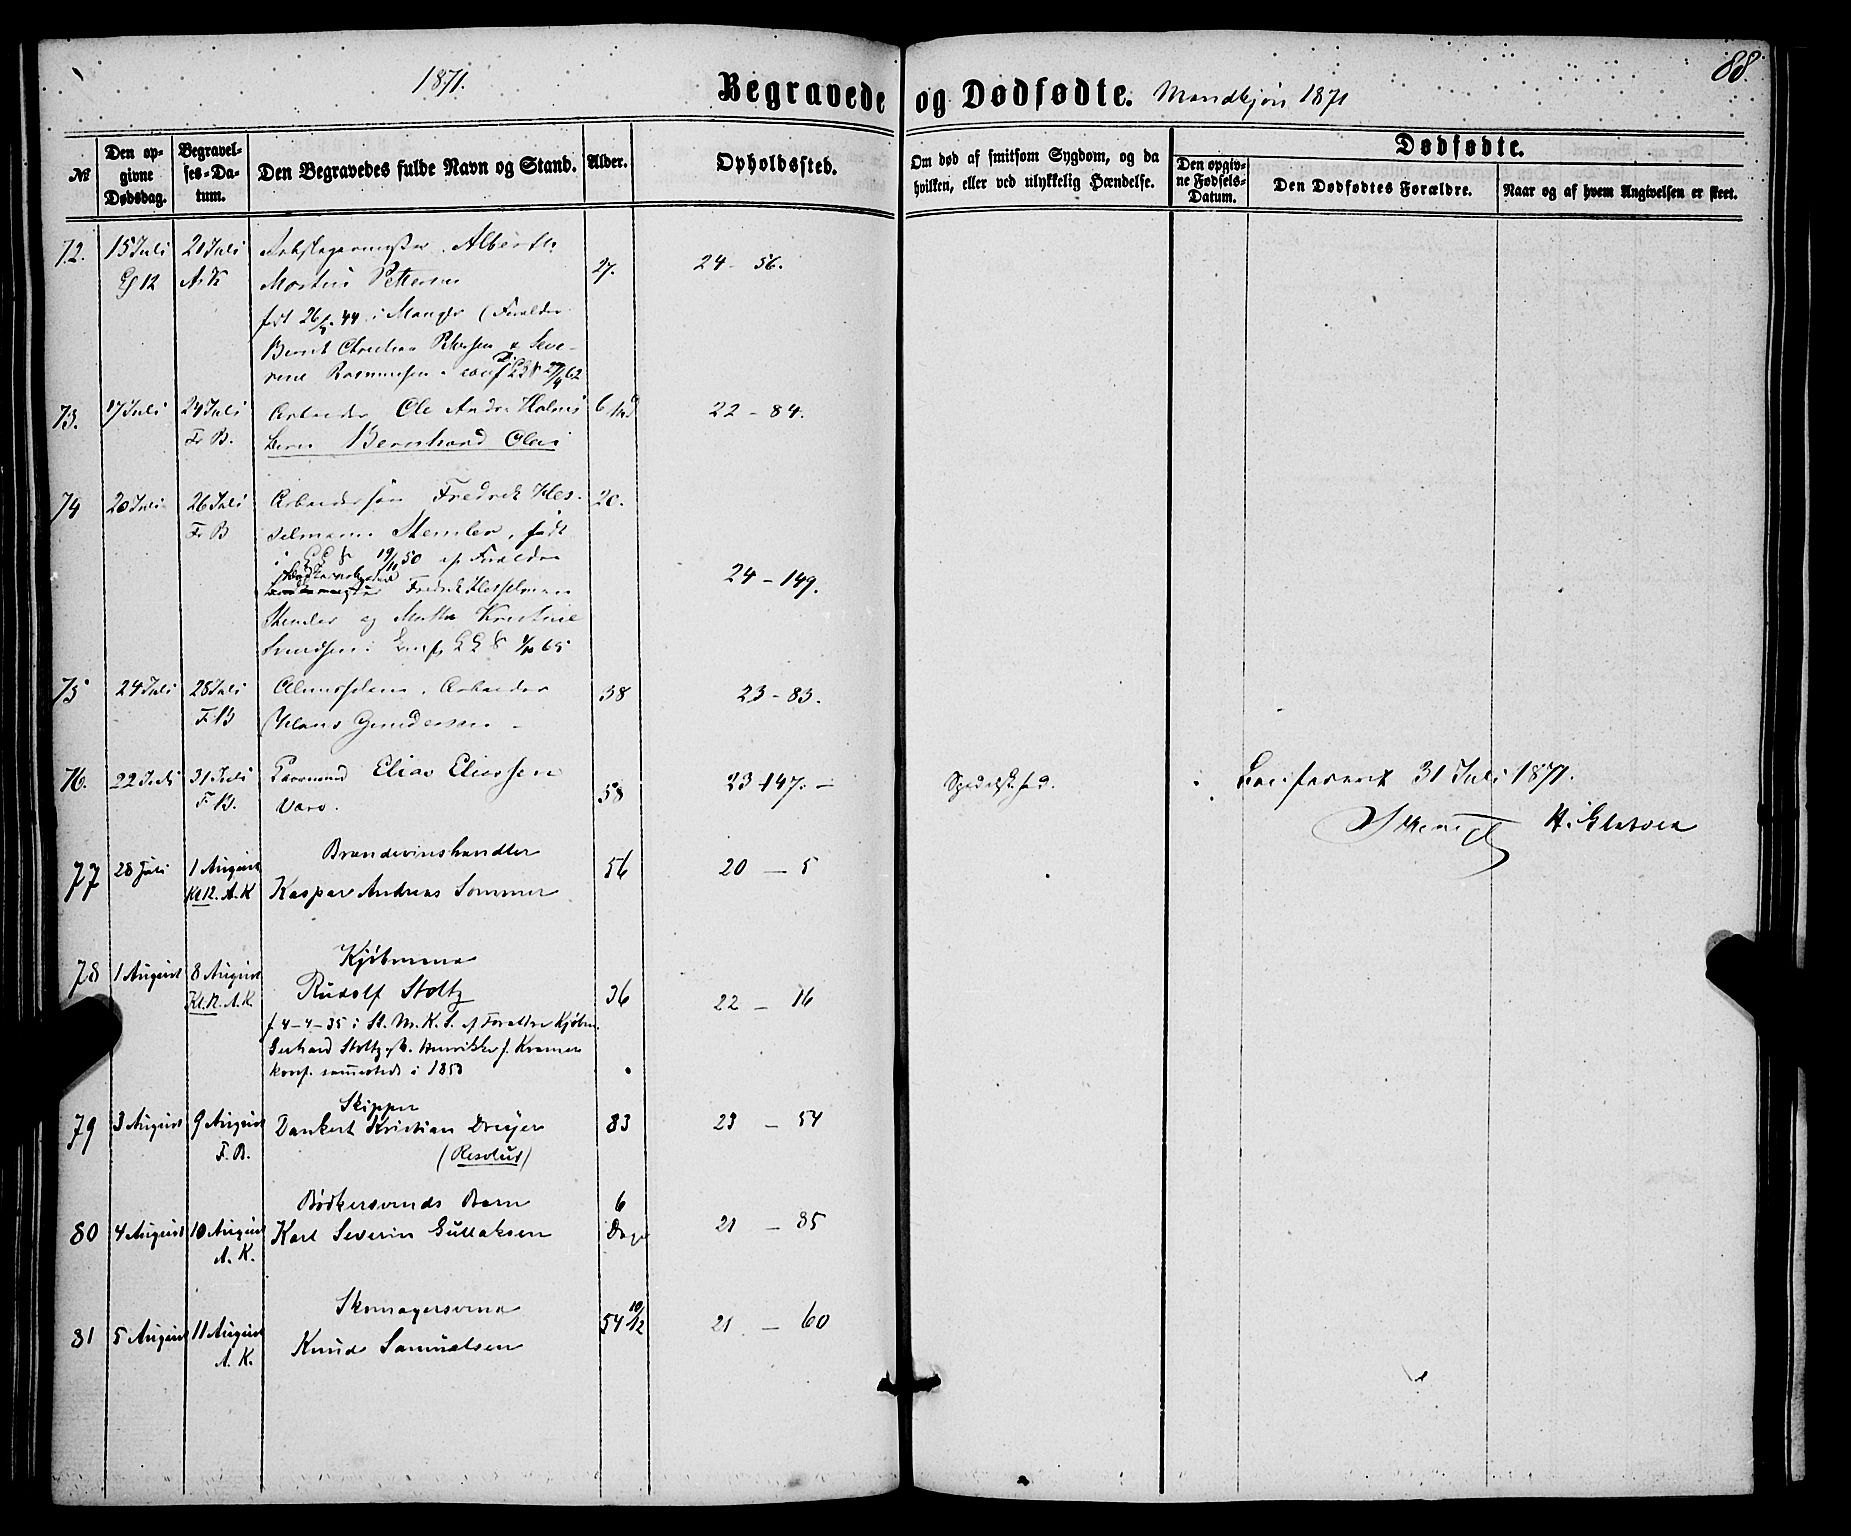 1871.
Begravede og Dødfødte. Mandkjøn 1871
88.
№
Den opgivne Dødsdag.
Begravelses-Datum.
Den Begravedes fulde Navn og Stand.
Alder.
Opholdssted.
Om død af smitsom Sygdom, og da hvilken, eller ved ulykkelig Hændelse.
Dødfødte.
Den opgivne Fødsels-Datum.
Den Dødfødtes Forældre.
Naar og af hvem Angivelsen er skeet.
72. 15 Juli 21 Juli Albert 27. 24 - 56.
A. K Martin Pettersen
født 26/ 44 i Manger (Forældre
Bernt Christian Petersen & Seve-
rine Rasmussen. conf 62
73. 17 Juli 24 Juli Arbeider Ole Andr. Holms 6 22 - 84.
F. B. barn Bernhard Olai
74 20 Juli 26 Juli Arbeidersøn Fredrik Hes- 20.
F. B selmann Stemler, født
i 19/11 50 af Forældre 24 - 149.
Fredrik Hesselmann
Stemler og Martha Kristine
Knudsen: 65
75 24 Juli 28 Juli Arbeider 38 23 - 83.
F. B Klaus Gundersen -
76. 22 Juli 31 Juli Elias Eliassen 58 23-147. - Spedalskhed.
F. B. Varø.
31 Juli 1871.
77 28 Juli 1 August Brændevinshandler 56 20 - 5
Kl 12. A. K Kaspar Andreas Sommer
78 1 August 8 August Kjøbmand 36 22 - 16
Kl. 12. A. K. Rudolf Stoltz
f 4-4-35 i St. M. K. S. af Forældre Kjøbm.
Gerhard Stoltz og h. Henrikke f. Kramer
konf. sammesteds i 1850
79 3 August 9 August Skipper 83 23 - 54
F. B. Dankert Kristian Dreyer
(Resolut)
80 4 August 10 August Bødkersvends Barn 6 Dage 21 - 85
A. K. Karl Severin Gullaksen
81 5 August 11 August Skomagersvend 54 10/12 21 - 60
A. K. Knud Samuelsen